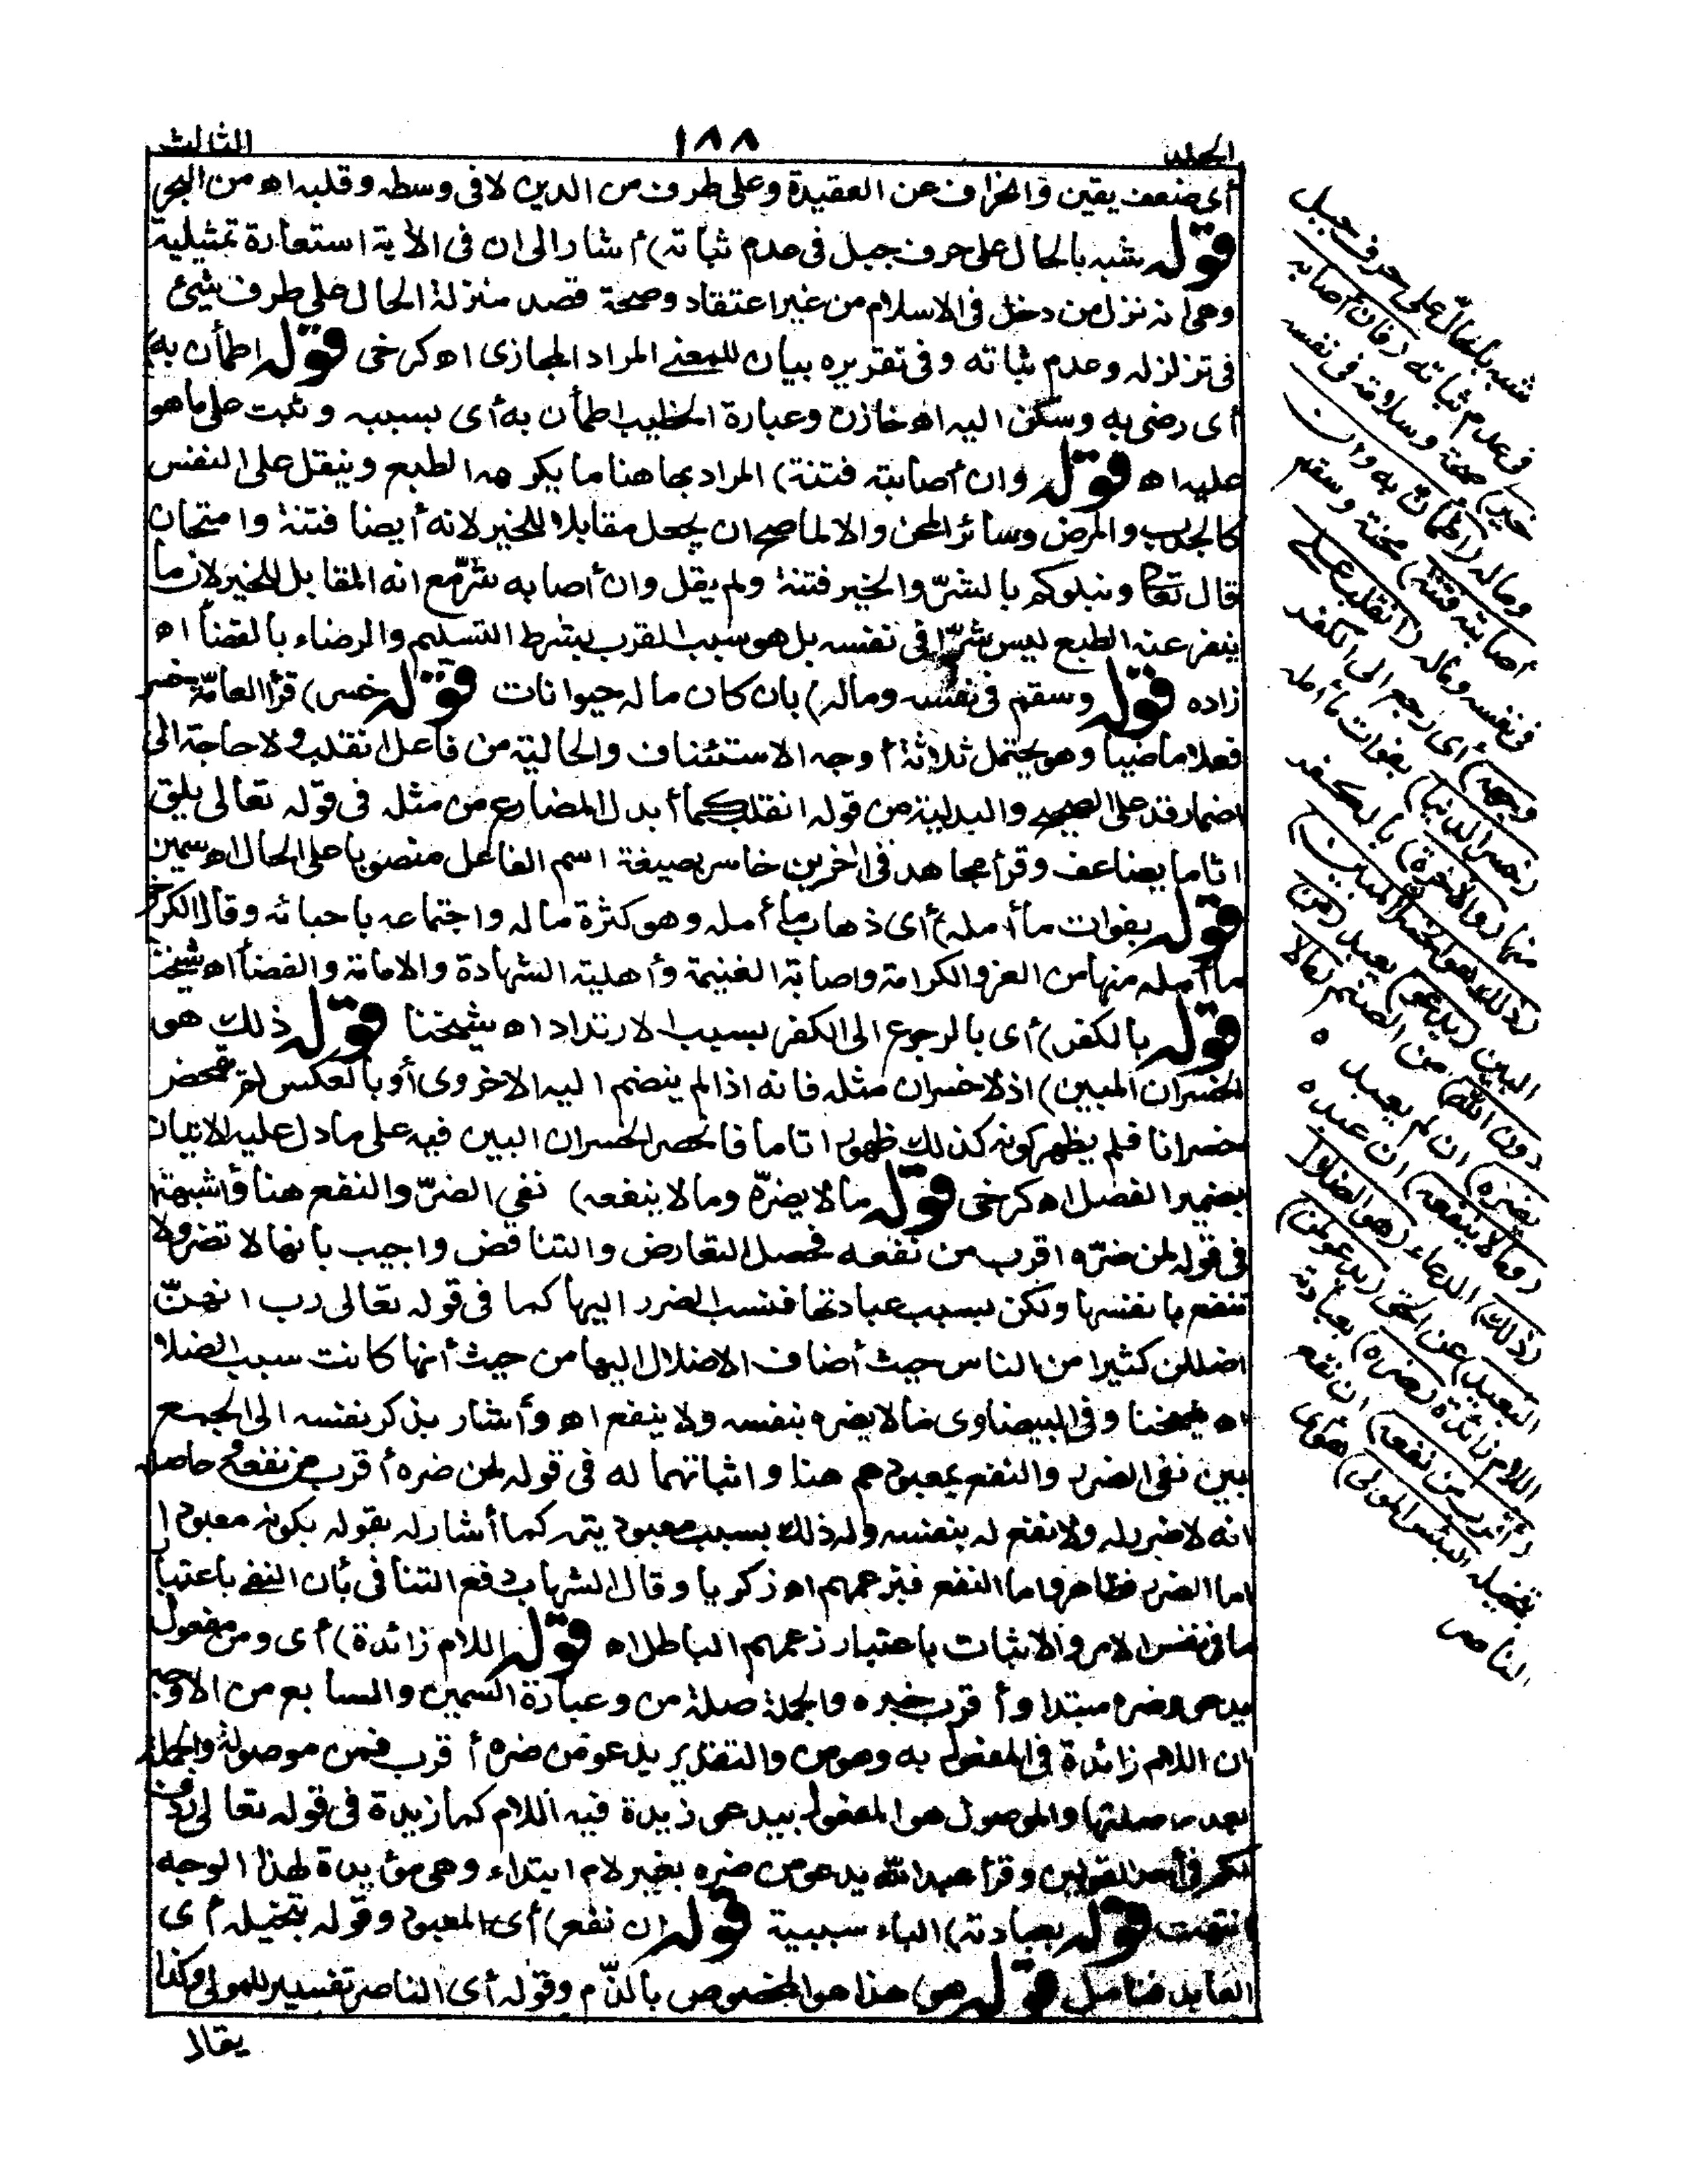 الجلد
١٨٨
الثالث
أى ضعف يقين وانحراف عن العقيدة وعلى طرف من الدين لا فى وسطه وقلبه اه من البحر
قوله شبه بالحال على حرف جبل فى عدم ثباته) أشار الى ان فى الأية استعارة تمثيلية
وهى انه نزل من دخل فى الاسلام من غير اعتقاد وصحة قصد منزلة الحال على طرف شئ
فى تزلزله وعدم ثباته وفى تقريره بيان للمعنى المراد المجازى اه كرخى قوله اطمأن به)
أى رضى به وسكن اليه اه خازن وعبارة الخطيب اطمأن به أى بسببه وثبت على ما هو
عليه اه قوله وان أصابته فتنة) المراد بها هنا ما يكرهه الطبع ويثقل على النفس
كالجدب والمرض وسائر المحن والا لما صح ان يجعل مقابلا للخير لانه أيضا فتنة وامتحان
قال تعالى ونبلوكم بالشرّ والخير فتنة ولم يقل وان أصابه شرّ مع انه المقابل للخير لان ما
ينفر عنه الطبع ليس شرّا فى نفسه بل هو سبب القرب بشرط التسليم والرضاء بالقضأ اه
زاده قوله وسقم فى نفسه وماله) بان كان ماله حيوانات قوله خسر) قرأ العامّة خسر
فعلا ماضيا وهو يحتمل ثلاثة أوجه الاستئناف والحالية من فاعل انقلب ولا حاجة الى
اضمار قد على الصحيح والبدلية من قوله انقلب كما أبدل المضارع من مثله فى قوله تعالى يلق
اثاما يضاعف وقرأ مجاهد فى أخرين خاسر بصيغة اسم الفاعل منصوبا على الحال اه سمين
قوله بفوات ما أمله) أى ذهاب ما أمله وهو كثرة ماله واجتماعه باحبائه وقال الكرخى
ما أمله منها من العز والكرامة واصابة الغنيمة وأهلية الشهادة والامامة والقضأ اه شيخنا
قوله بالكفر) أى بالرجوع الى الكفر بسبب الارتداد اه شيخنا قوله ذلك هو
الخسران المبين) اذ لا خسران مثله فانه اذا لم ينضم اليه الاخروى أو بالعكس لم يتمحض
خسرانا فلم يظهر كونه كذلك ظهورا تاما فانحصر الخسران البين فيه على ما دل عليه الاتيان
بضمير الفصل اه كرخى قوله ما لا يضرّه وما لا ينفعه) نفى الضرّ والنفع هنا وأثبتهما
فى قوله لمن ضرّه اقرب من نفعه فحصل التعارض والتناقض واجيب بانها لا تضر ولا
تنفع بانفسها ولكن بسبب عبادتها فنسب الضرر اليها كما فى قوله تعالى رب انهنّ
اضللن كثيرا من الناس حيث أضاف الاضلال اليها من حيث أنها كانت سبب الضلال
اه شيخنا وفى البيضاوى ما لا يضره بنفسه ولا ينفع اه وأشار بذكر نفسه الى الجمع
بين نفى الضرر والنفع بمعبودهم هنا واثباتهما له فى قوله لمن ضره أقرب من نفعه وحاصله
انه لا ضرر له ولا نفع له بنفسه وله ذلك بسبب معبوديته كما أشار له بقوله بكونه معبودا
اما الضرر فظاهر واما النفع فبزعمهم اه زكريا وقال الشهاب دفع التنافى بأن النفى باعتبار
ما فى نفس الامر والاثبات باعتبار زعمهم الباطل اه قوله اللام زائدة) أى ومن مفعول
يدعو وضره مبتدا وأقرب خبره والجملة صلة من وعبارة السمين والسابع من الاوجه
ان اللام زائدة فى المفعول به وهو من والتقدير يدعو من ضره أقرب فمن موصولة والجملة
بعدها صلتها والموصول هو المفعول بيدعو زيدة فيه اللام كما زيدة فى قوله تعالى ردف
لكم فى أحد القولين وقرأ عبد الله يدعو من ضره بغير لام ابتداء وهى مؤيدة لهذا الوجه
انتهت قوله بعبادته) الباء سببية قوله ان نفع) أى المعبود وقوله بتخيله أى
العابد فتأمل قوله هو) هذا هو المخصوص بالذّم وقوله أى الناصر تفسير للمولى وكذا
يقال
شبه بالحالّ على حرف جبل
فى عدم ثباته (فان اصابه
خير) صحة وسلامة فى نفسه
وماله (اطمأنّ به وان
أصابته فتنة) محنة وسقم
فى نفسه وماله (انقلب على
وجهه) أى رجع الى الكفر
(خسر الدنيا) بفوات ما أمله
منها (والآخرة) بالكفر
(ذلك هو الخسران المبين)
البين (يدعو) يعبد (من
دون الله) من الصنم (ما لا
يضره) ان لم يعبده
(وما لا ينفعه) ان عبده
(ذلك) الدعاء (هو الضلال
البعيد) عن الحق (يدعو لمن)
اللام زائدة (ضره) بعبادته
(أقرب من نفعه) ان نفع
بتخيله (لبئس المولى) هو أى
الناصر